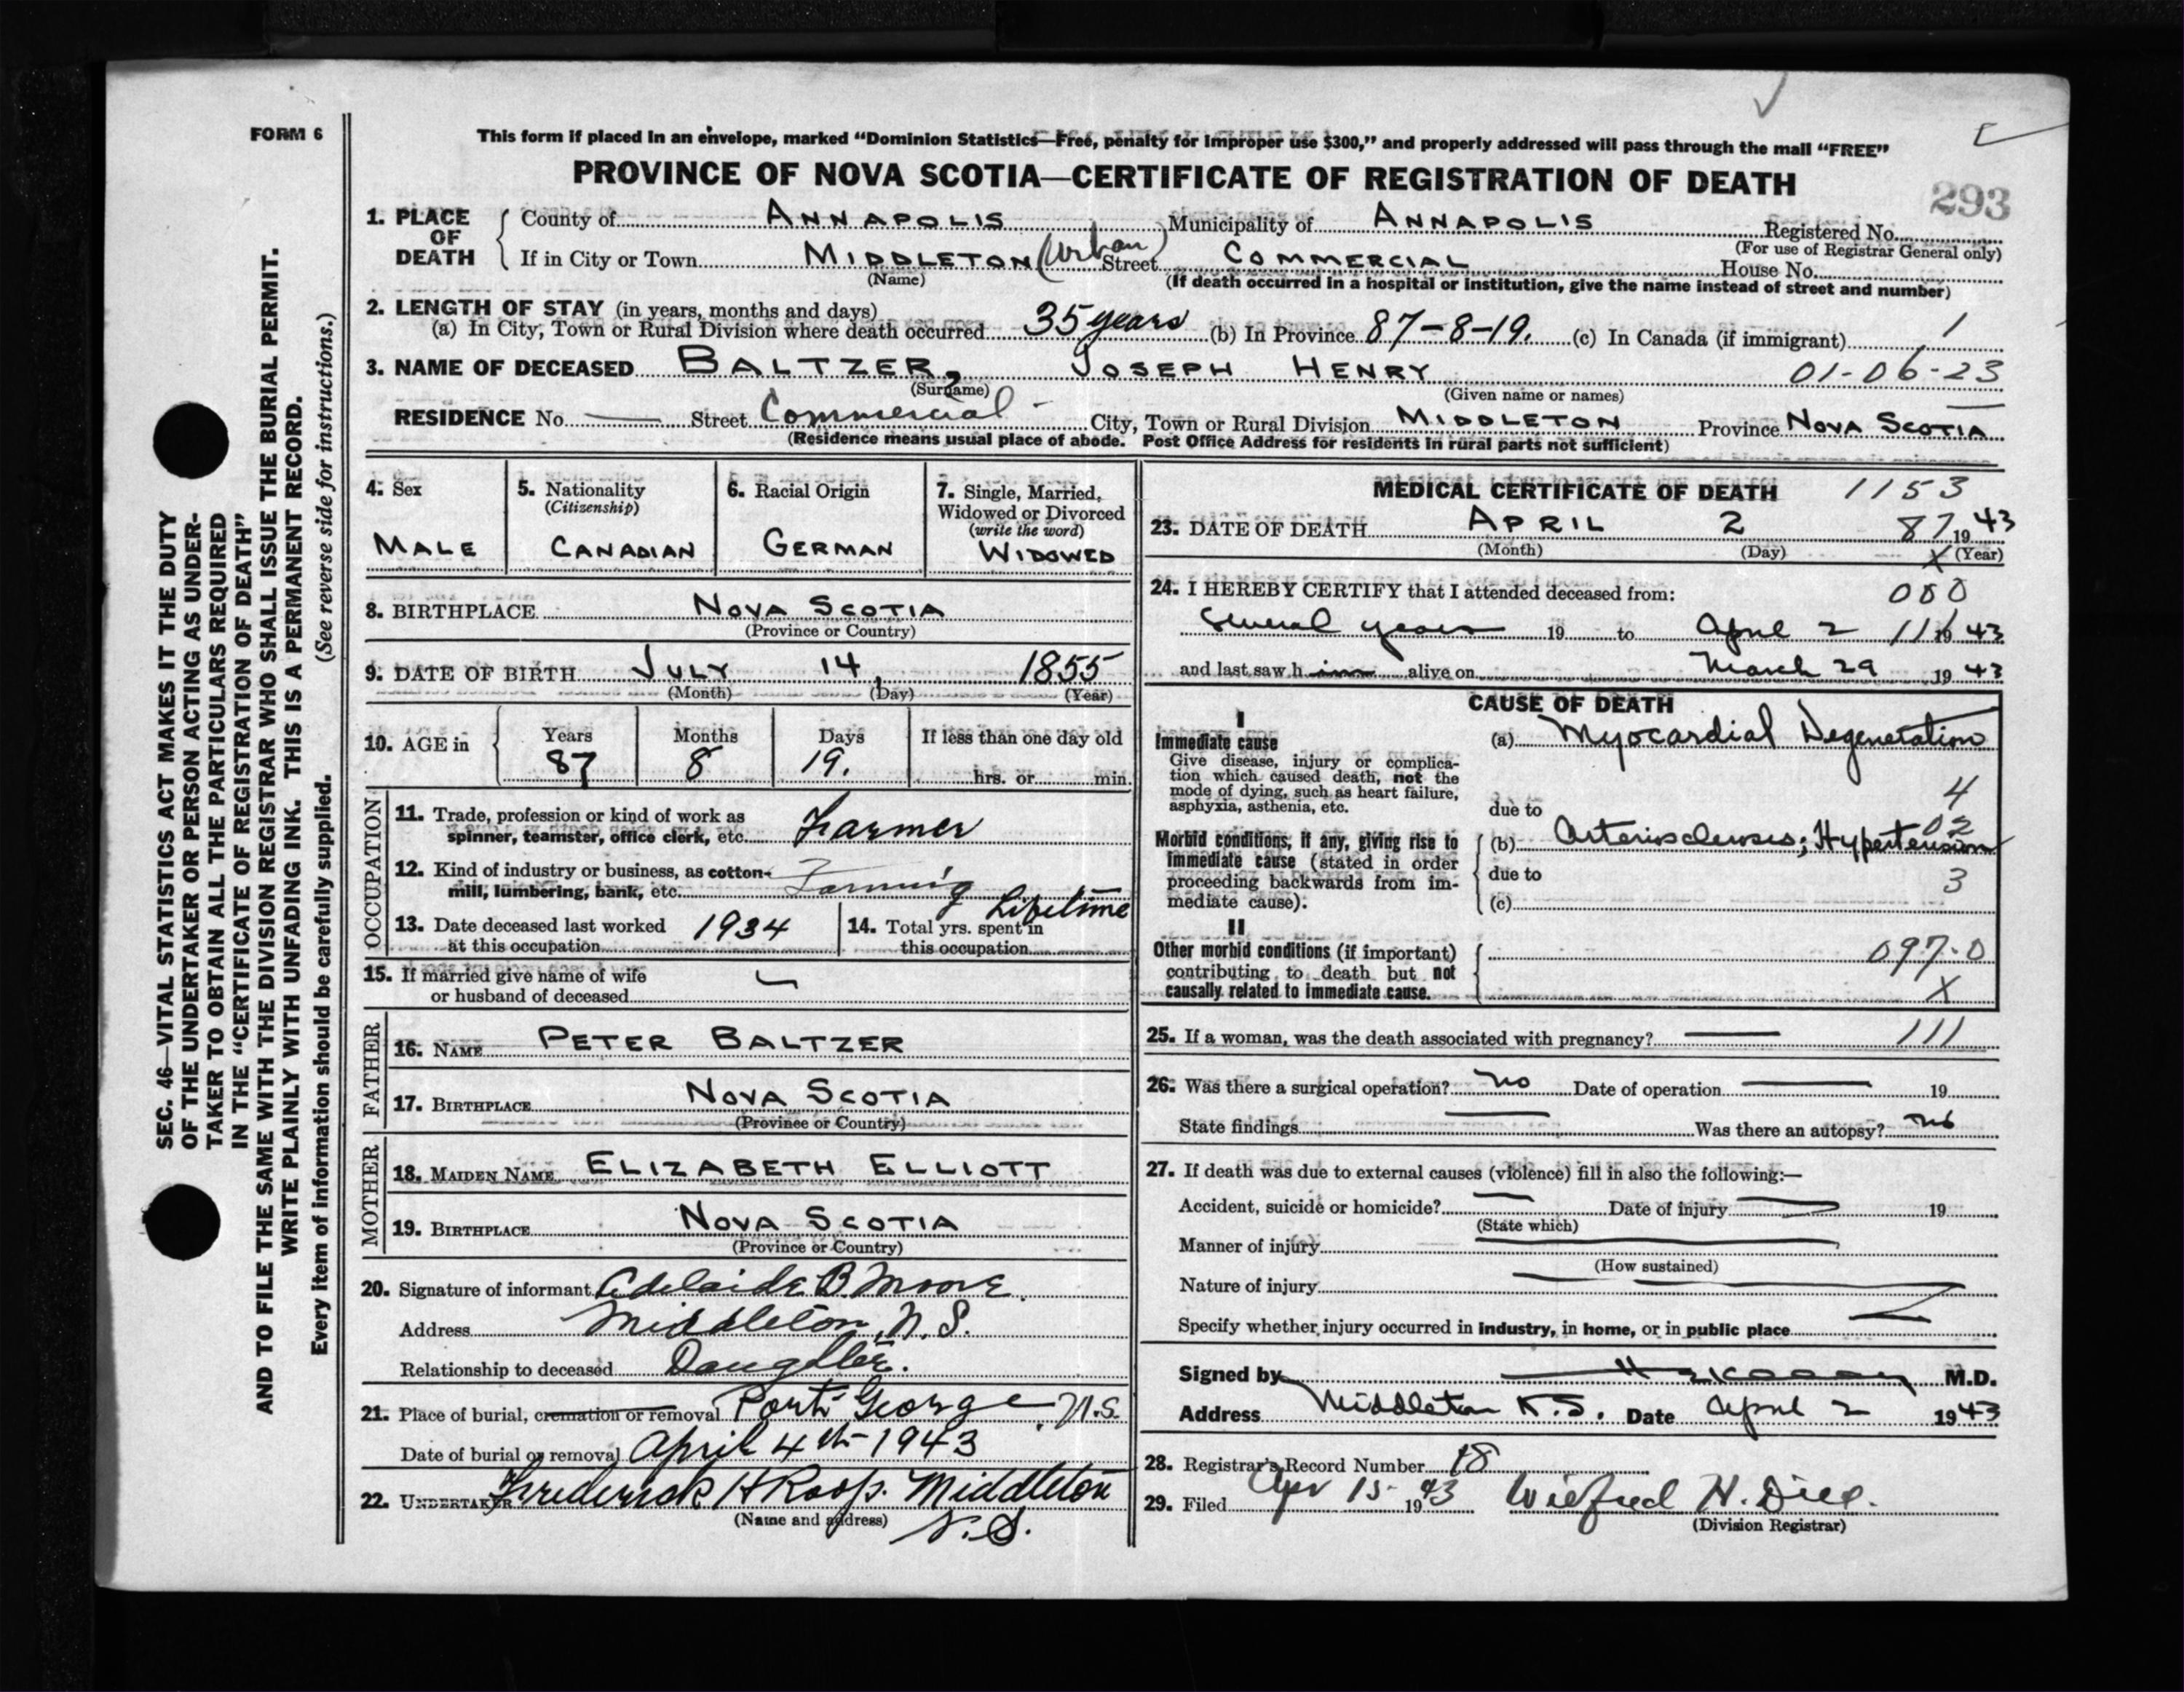 FORM 6
This form if placed in an envelope, marked "Dominion Statistics—Free, penalty for improper use $300," and properly addressed will pass through the mail "FREE"
PROVINCE OF NOVA SCOTIA—CERTIFICATE OF REGISTRATION OF DEATH
293
1. PLACE OF DEATH
County of ANNAPOLIS Municipality of ANNAPOLIS Registered No.
(For use of Registrar General only)
If in City or Town MIDDLETON (Urban) Street COMMERCIAL House No.
(Name) (If death occurred in a hospital or institution, give the name instead of street and number)
2. LENGTH OF STAY (in years, months and days)
(a) In City, Town or Rural Division where death occurred 35 years (b) In Province 87-8-19. (c) In Canada (if immigrant) 1
3. NAME OF DECEASED BALTZER, JOSEPH HENRY 01-06-23
(Surname) (Given name or names)
RESIDENCE No. — Street Commercial - City, Town or Rural Division MIDDLETON Province NOVA SCOTIA
(Residence means usual place of abode. Post Office Address for residents in rural parts not sufficient)
SEC. 46—VITAL STATISTICS ACT MAKES IT THE DUTY
OF THE UNDERTAKER OR PERSON ACTING AS UNDER-
TAKER TO OBTAIN ALL THE PARTICULARS REQUIRED
IN THE "CERTIFICATE OF REGISTRATION OF DEATH"
AND TO FILE THE SAME WITH THE DIVISION REGISTRAR WHO SHALL ISSUE THE BURIAL PERMIT.
WRITE PLAINLY WITH UNFADING INK. THIS IS A PERMANENT RECORD.
Every item of information should be carefully supplied. (See reverse side for instructions.)
4. Sex
MALE
5. Nationality
(Citizenship)
CANADIAN
6. Racial Origin
GERMAN
7. Single, Married,
Widowed or Divorced
(write the word)
WIDOWED
8. BIRTHPLACE NOVA SCOTIA
(Province or Country)
9. DATE OF BIRTH JULY 14, 1855
(Month) (Day) (Year)
10. AGE in
Years Months Days If less than one day old
87 8 19. hrs. or min.
OCCUPATION
11. Trade, profession or kind of work as
spinner, teamster, office clerk, etc. Farmer
12. Kind of industry or business, as cotton-
mill, lumbering, bank, etc. Farming
13. Date deceased last worked
at this occupation 1934
14. Total yrs. spent in
this occupation Lifetime
15. If married give name of wife
or husband of deceased
FATHER
16. NAME PETER BALTZER
17. BIRTHPLACE NOVA SCOTIA
(Province or Country)
MOTHER
18. MAIDEN NAME ELIZABETH ELLIOTT
19. BIRTHPLACE NOVA SCOTIA
(Province or Country)
20. Signature of informant Adelaide B. Moore.
Address Middleton, N.S.
Relationship to deceased Daughter.
21. Place of burial, cremation or removal Port George, N.S.
Date of burial or removal April 4th 1943
22. UNDERTAKER Frederick H Roop. Middleton
(Name and address) N.S.
MEDICAL CERTIFICATE OF DEATH 1153
23. DATE OF DEATH APRIL 2 87 1943
(Month) (Day) X (Year)
24. I HEREBY CERTIFY that I attended deceased from: 000
Several years 19 to April 2 111 1943
and last saw h im alive on March 29 1943
CAUSE OF DEATH
I
Immediate cause
Give disease, injury or complica-
tion which caused death, not the
mode of dying, such as heart failure,
asphyxia, asthenia, etc.
(a) Myocardial Degeneration
4
due to 02
Morbid conditions, if any, giving rise to
immediate cause (stated in order
proceeding backwards from im-
mediate cause).
(b) Arteriosclerosis; Hypertension
due to 3
(c)
II
Other morbid conditions (if important)
contributing to death but not
causally related to immediate cause.
097-0
X
25. If a woman, was the death associated with pregnancy? — 111
26. Was there a surgical operation? no Date of operation — 19
State findings — Was there an autopsy? no
27. If death was due to external causes (violence) fill in also the following:—
Accident, suicide or homicide? — Date of injury — 19
(State which)
Manner of injury
(How sustained)
Nature of injury
Specify whether injury occurred in industry, in home, or in public place
Signed by M.D.
Address Middleton N.S. Date April 2 1943
28. Registrar's Record Number 18
29. Filed Apr 15 1943 Wilfred H.
(Division Registrar)